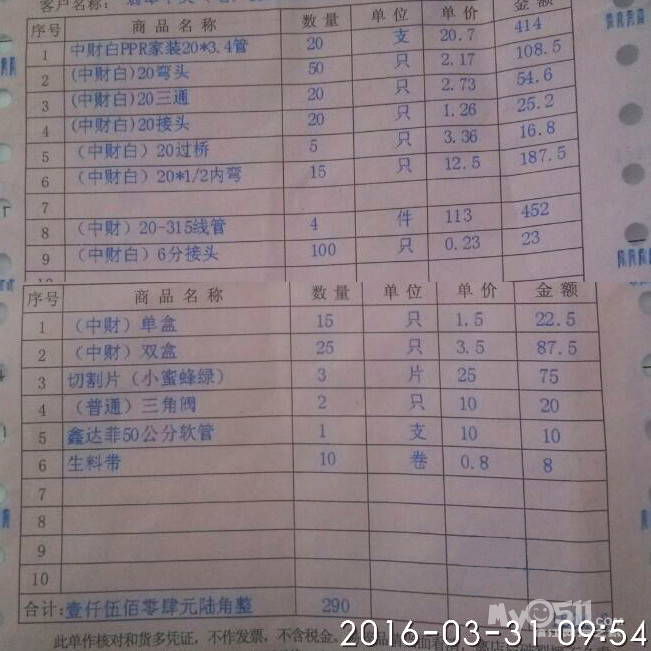 客户名称:
序号 商品名称 数量 单位 单价 金额
1 中财白PPR家装20*3.4管 20 支 20.7 414
2 (中财白)20弯头 50 只 2.17 108.5
3 (中财白)20三通 20 只 2.73 54.6
4 (中财白)20接头 20 只 1.26 25.2
5 (中财白)20过桥 5 只 3.36 16.8
6 (中财白)20*1/2内弯 15 只 12.5 187.5
7
8 (中财)20-315线管 4 件 113 452
9 (中财白)6分接头 100 只 0.23 23
序号 商品名称 数量 单位 单价 金额
1 (中财)单盒 15 只 1.5 22.5
2 (中财)双盒 25 只 3.5 87.5
3 切割片(小蜜蜂绿) 3 片 25 75
4 (普通)三角阀 2 只 10 20
5 鑫达菲50公分软管 1 支 10 10
6 生料带 10 卷 0.8 8
7
8
9
10
合计: 壹仟伍佰零肆元陆角整 290
此单作核对和货多凭证，不作发票，不含税金。
2016-03-31 09:54
My0511.com